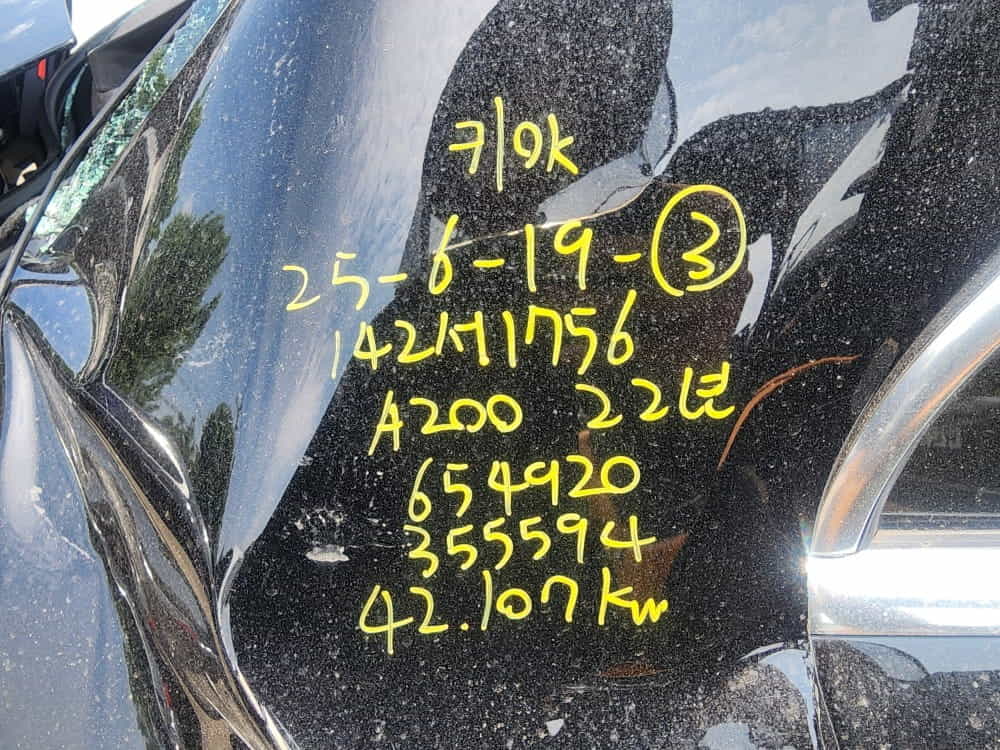 키OK
25-6-19-③
142서1756
A200 22년
654920
355594
42.107km